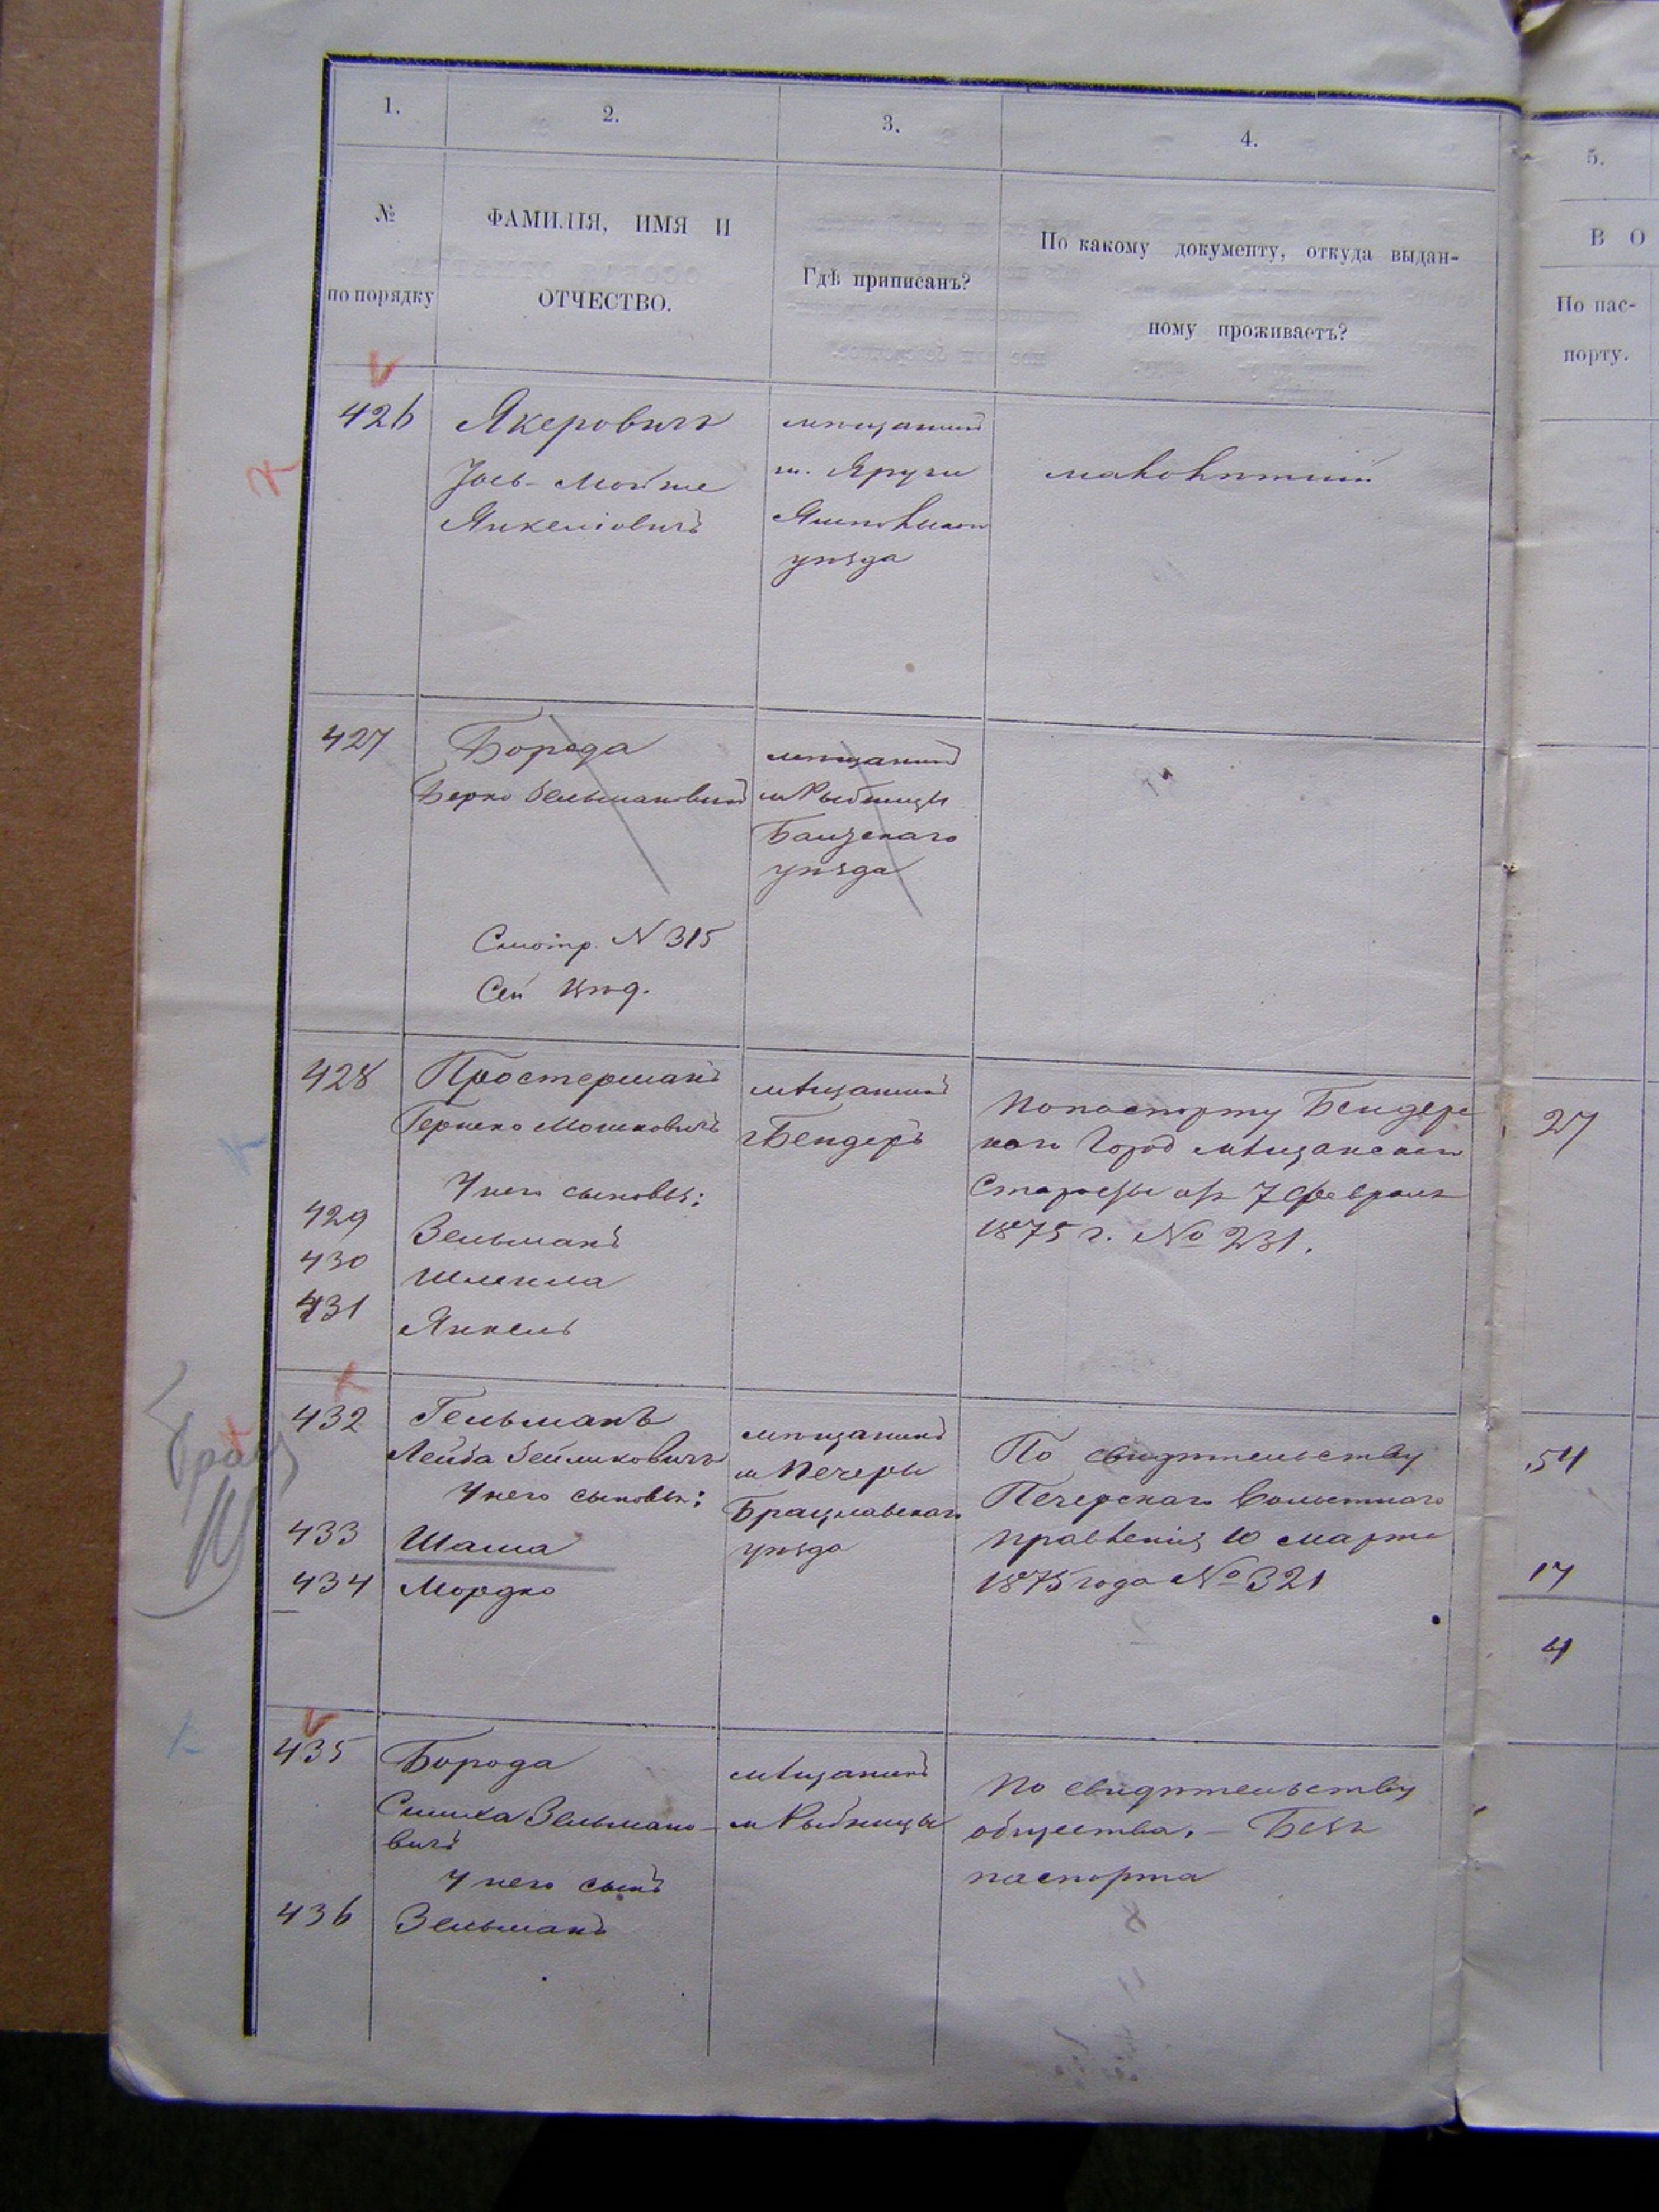 1.
2.
3.
4.
5.
№
по порядку
ФАМИЛІЯ, ИМЯ И
ОТЧЕСТВО.
Гдѣ приписанъ?
По какому документу, откуда выдан-
ному проживаетъ?
В О
По пас-
порту.
426
Якеровичъ
Іось-Мойше
Янкеліовичъ
мѣщанинъ
м. Яруги
Ямпольскаго
уѣзда
малолѣтній
427
Борода
Берко Зельмановичъ
мѣщанинъ
м Рыбницы
Балтскаго
уѣзда
Смотр. N 315
Сей
428
Простерманъ
Гершко Мошковичъ
У него сыновья:
429
Зельманъ
430
Шлема
431
Янкель
мѣщанинъ
г Бендеръ
По паспорту Бендерс
каго Город мѣщанскаго
Старосты отъ 7 февраля
1875 г. № 231.
27
432
Гельманъ
Лейба Зейликовичъ
У него сыновья:
433
Шама
434
Мордко
мѣщанинъ
м Печеры
Брацлавскаго
уѣзда
По свидѣтельству
Печерскаго Волостнаго
правленія 10 марта
1875 года № 321
54
17
4
435
Борода
Симха Зельмано-
вичъ
У него сынъ
436
Зельманъ
мѣщанинъ
м Рыбницы
По свидѣтельству
общества. – Безъ
паспорта